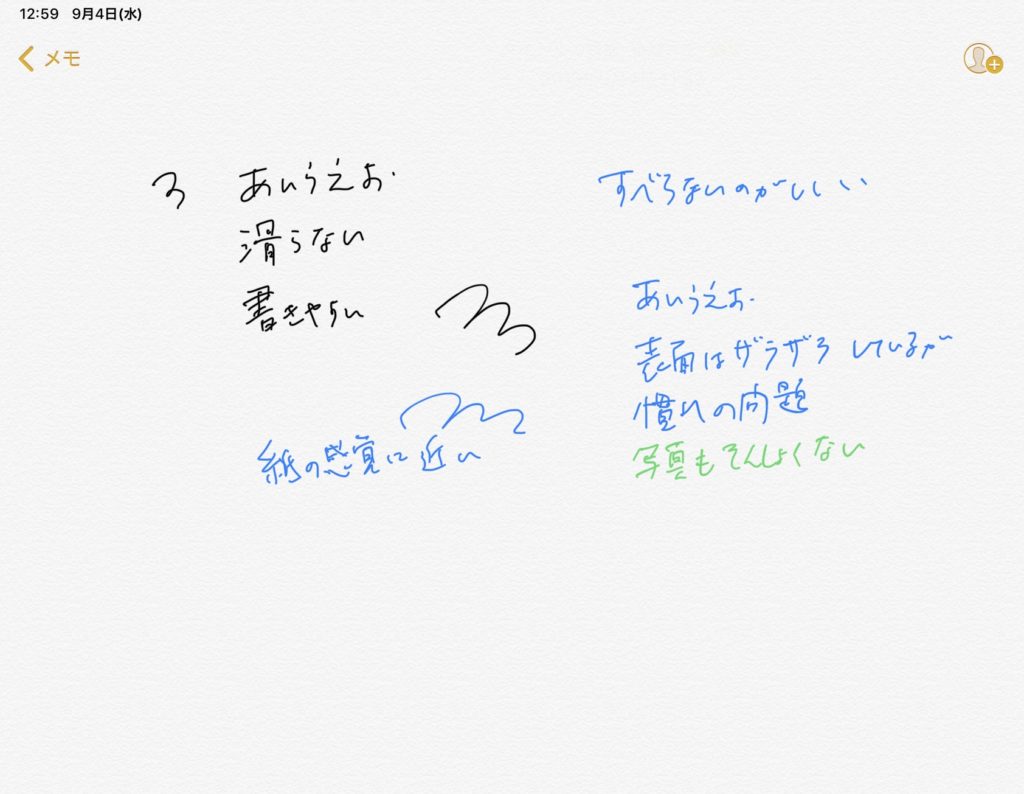 12:59 9月4日(水)
メモ
あいうえお
滑らない
書きやすい
紙の感覚に近い
すべらないのがいい
あいうえお
表面はザラザラしているが
慣れの問題
写真もそんしょくない